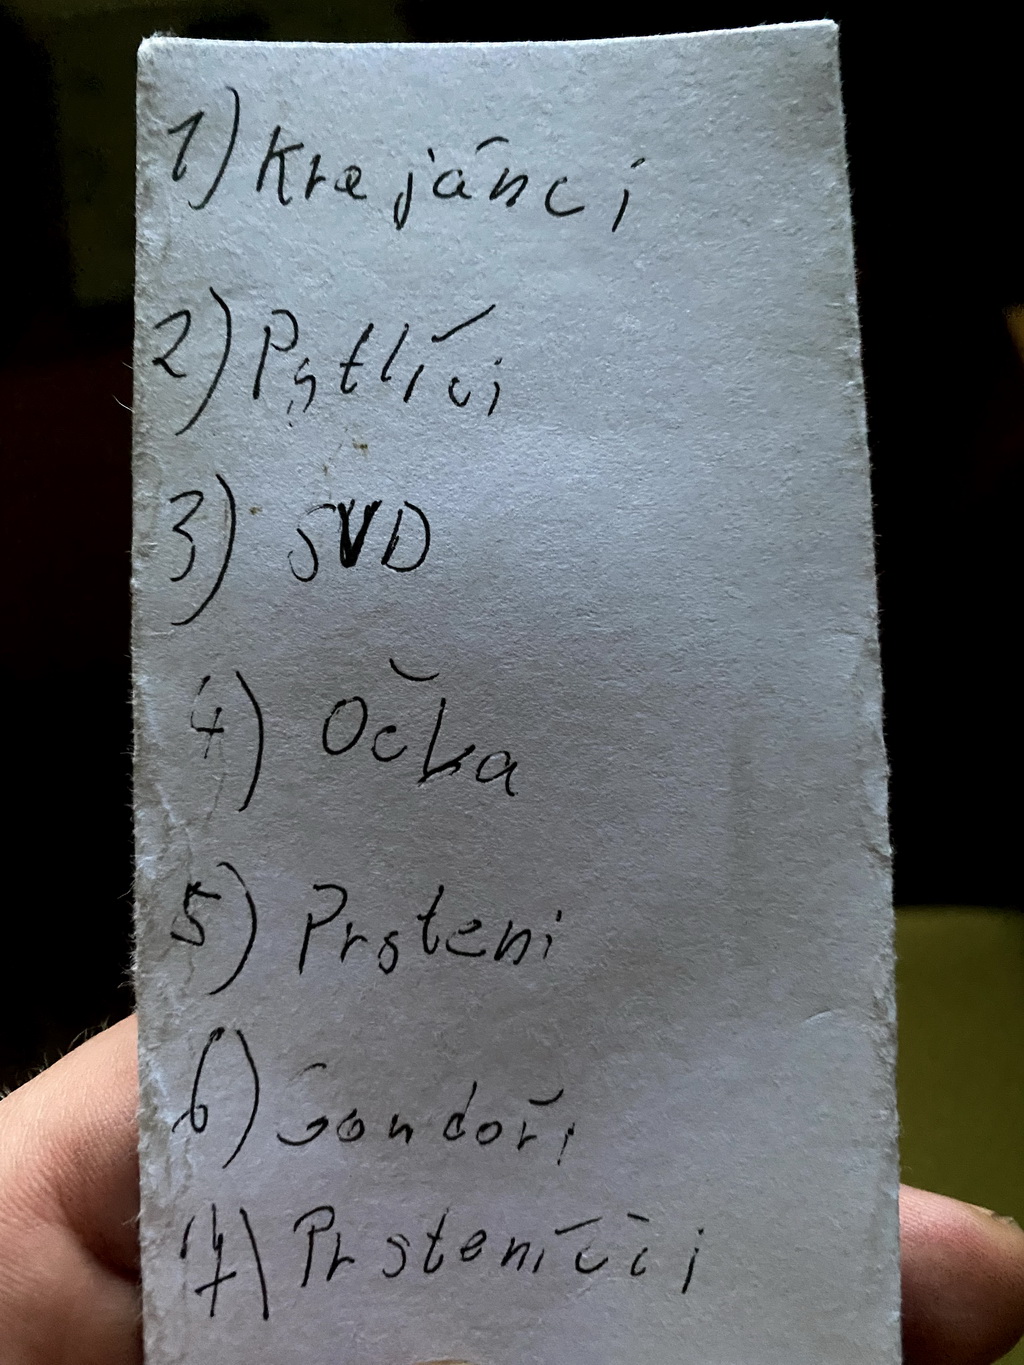 1) Krajánci
2) Pstlíci
3) SVD
4) Očka
5) Prsteni
6) Gondoři
14) Prsteníčci